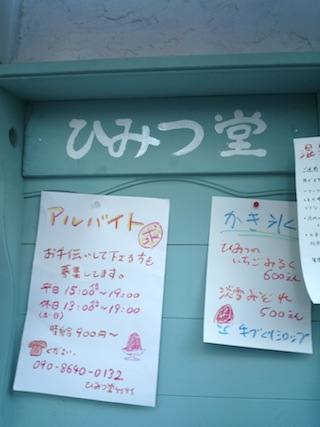 ひみつ堂
アルバイト 募
お手伝いして下さる方を
募集してます。
平日 15:00~19:00
休日 13:00~19:00
(土・日)
時給 900円〜
ください。
090-8640-0132
ひみつ堂
かき氷
ひみつの
いちごみるく
600えん
淡雪みぞれ
500えん
手づくりシロップ